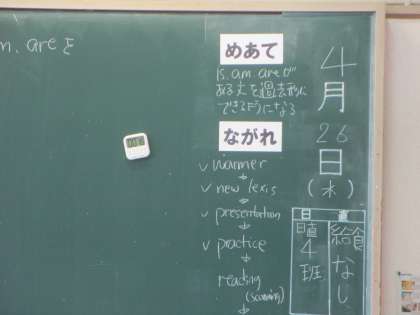 m. are を
めあて
is. am. are が
ある文を過去形に
できるようになる
ながれ
✓ warmer
✓ new lexis
✓ presentation
✓ practice
reading
(scanning)
4
月
26
日
(水)
日直
日直
4
班
給食
なし